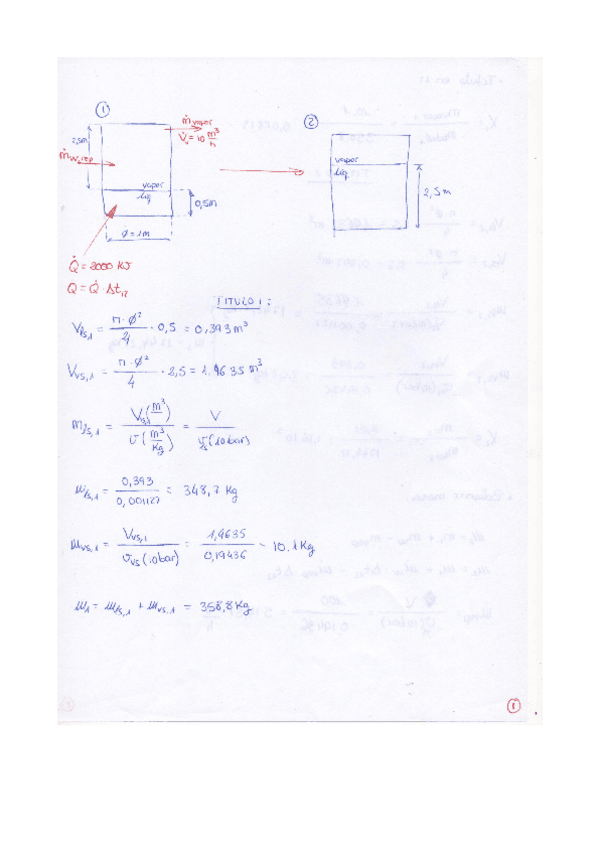 ①
②
ṁvapor
V̇v = 10 m³/h
2,5m
ṁw,rep
vapor
liq
0,5m
φ = 1m
vapor
liq
2,5m
Q̇ = 2000 KJ
Q = Q̇ · Δt12
TITULO 1:
Vls,1 = π·φ²/4 · 0,5 = 0,393 m³
Vvs,1 = π·φ²/4 · 2,5 = 1,9635 m³
mls,1 = Vls,1 (m³) / v (m³/Kg) = V / vls (10bar)
mls,1 = 0,393 / 0,001127 = 348,7 Kg
mvs,1 = Vvs,1 / vvs (10bar) = 1,9635 / 0,19436 = 10,1 Kg
m1 = mls,1 + mvs,1 = 358,8 Kg
①